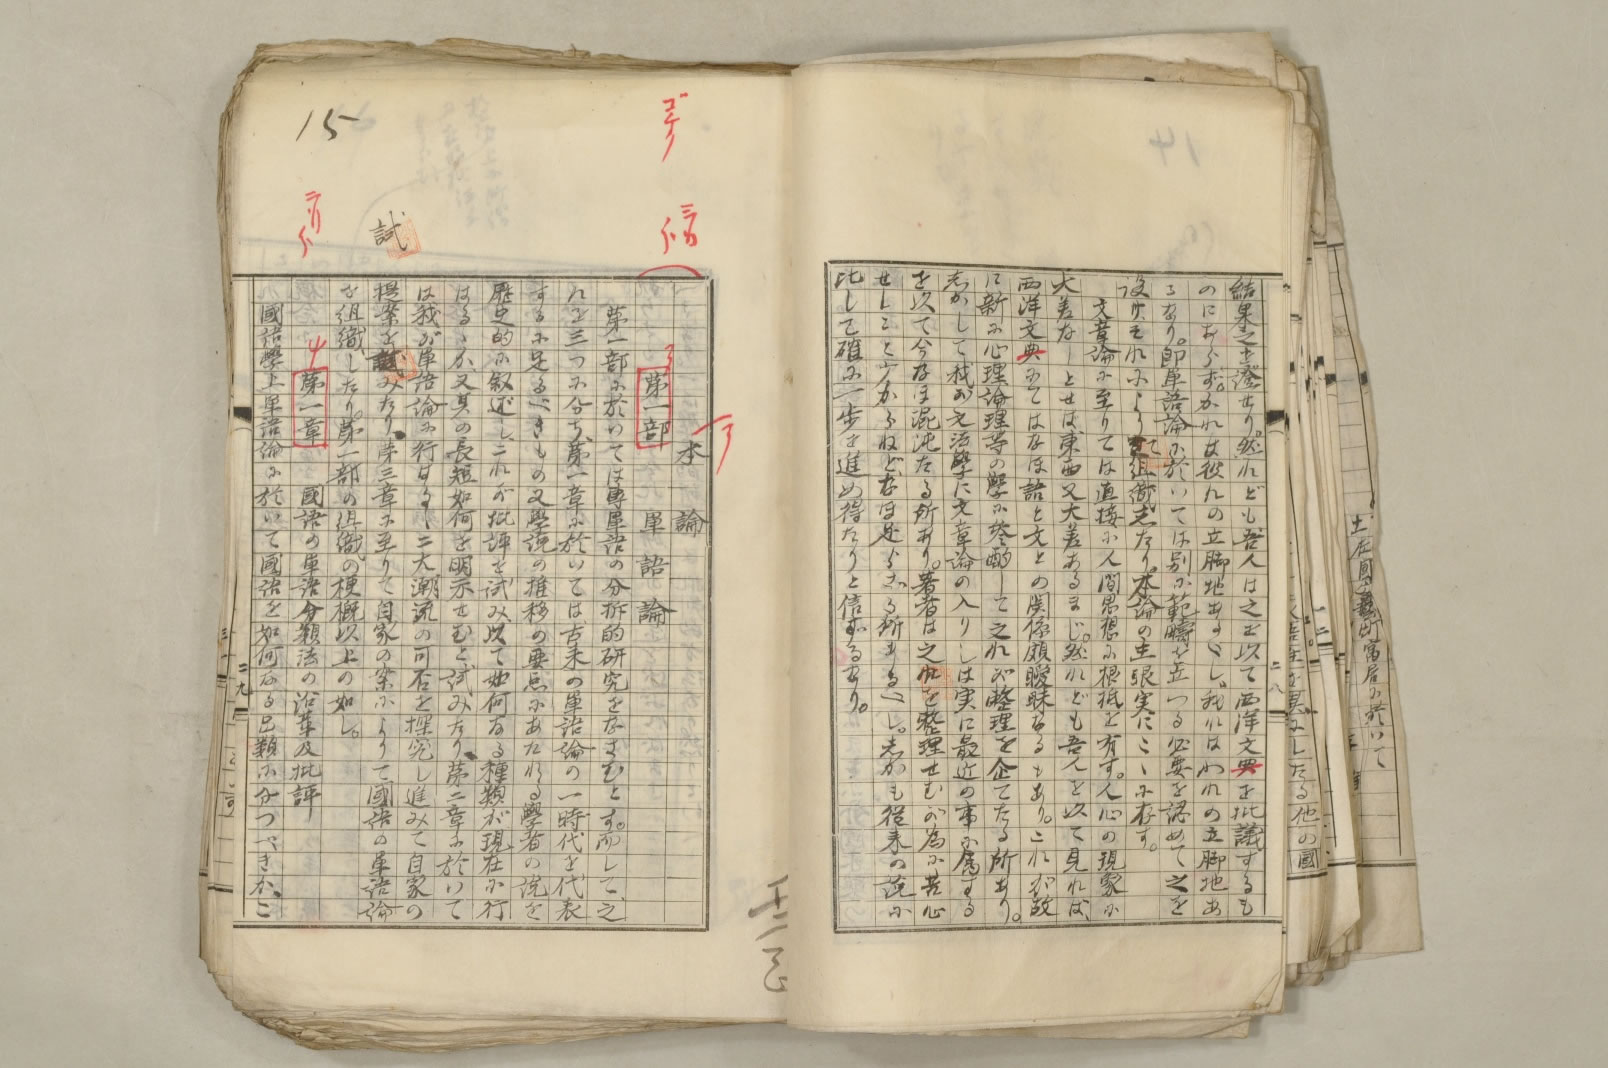 結果之を證せり。然れども吾人は之を以て西洋文典を批議するも
のにあらず。かれは彼れの立脚地あるべし。我れはわれの立脚地あ
るなり。即単語論に於いては別に範疇を立つる必要を認めて之を
設けそれによりて組織したり。本論の主張実にこゝに存す。
文章論に至りては直接に人間思想に根拠を有す。人心の現象に
大差なしとせば東西又大差あるまじ。然れども吾人を以て見れば、
西洋文典にてはなほ語と文との関係頗曖昧なるもあり。これが故
に新に心理論理等の學に参酌して之れが整理を企てたる所あり。
志かして我が文法學に文章論の入りしは実に最近の事に属する
を以て今なほ混沌たる所あり。著者は之れを整理せむが為に苦心
せしこと少からねどなほ足らざる所あるべし。志かも従来の説に
比して確に一歩を進め得たりと信ずるなり。
二八
15
試
本論
第一部 単語論
第一部に於いては専単語の分析的研究をなさむとす。而して、之
れを三つに分ち、第一章に於いては古来の単語論の一時代を代表
するに足るべきもの又學説の推移の要点にあたれる學者の説を
歴史的に叙述し、これが批評を試み以て如何なる種類が現在に行
はるゝか又其の長短如何を明示せむと試みたり。第二章に於いて
は我が単語論に行はるゝ二大潮流の可否を探究し進みて自家の
提案を試みたり。第三章に至りて自家の案によりて國語の単語論
を組織したり。第一部の組織の梗概以上の如し。
第一章 國語の単語分類法の沿革及批評
國語學上単語論に於いて國語を如何なる品類に分つべきか、こ
二九